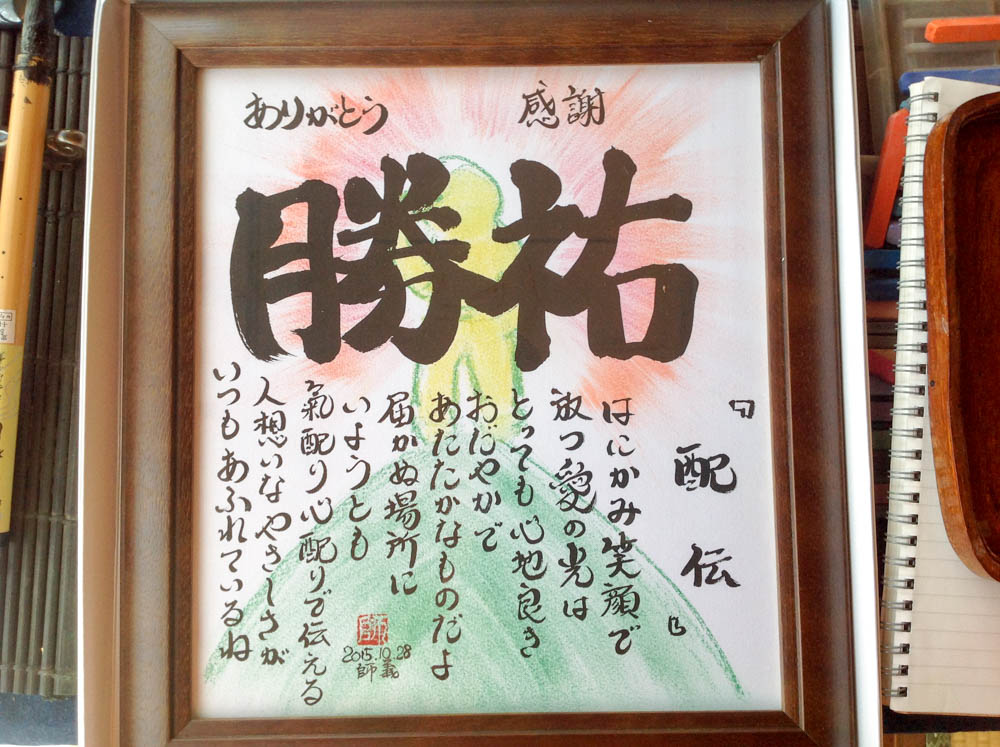 ありがとう
感謝
勝祐
「配伝」
はにかみ笑顔で
放つ愛の光は
とっても心地良き
おだやかで
あたたかなものだよ
届かぬ場所に
いようとも
氣配り心配りで伝える
人想いなやさしさが
いつもあふれているね
2015.10.28
師義